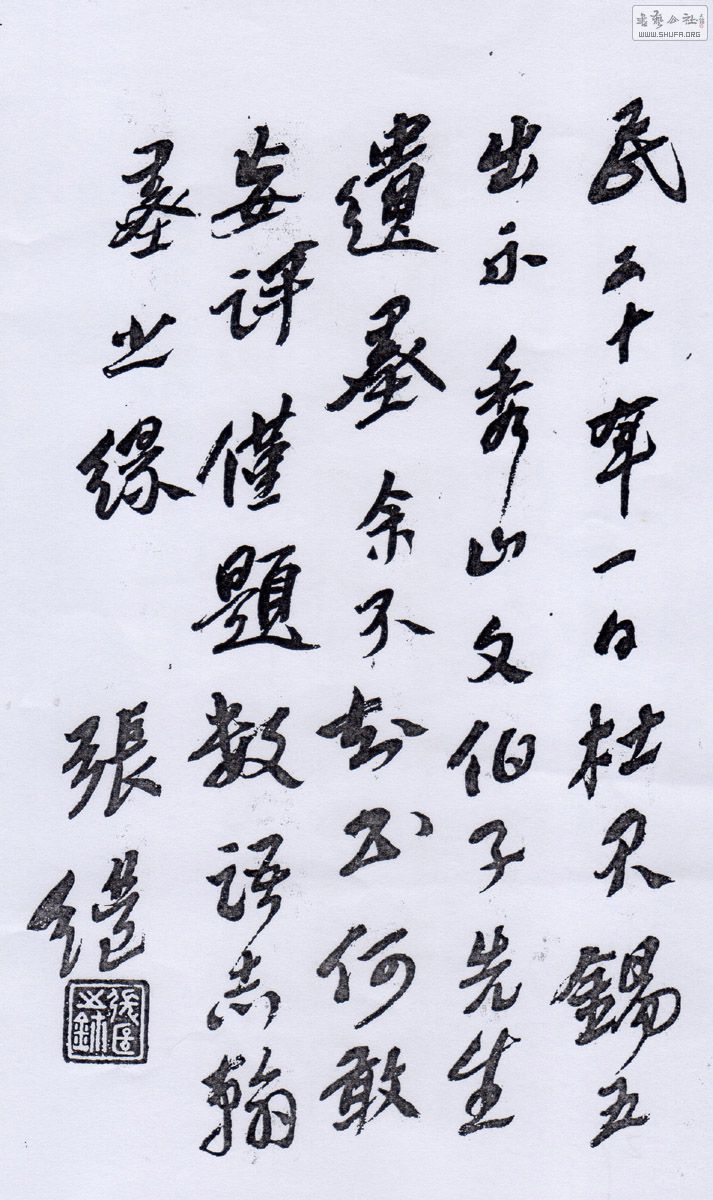 民二十年一日杜君錫五
出示秀山文伯子先生
遺墨余不知書何敢
妄評僅題数語志翰
墨之緣
張繼
WWW.SHUFA.ORG